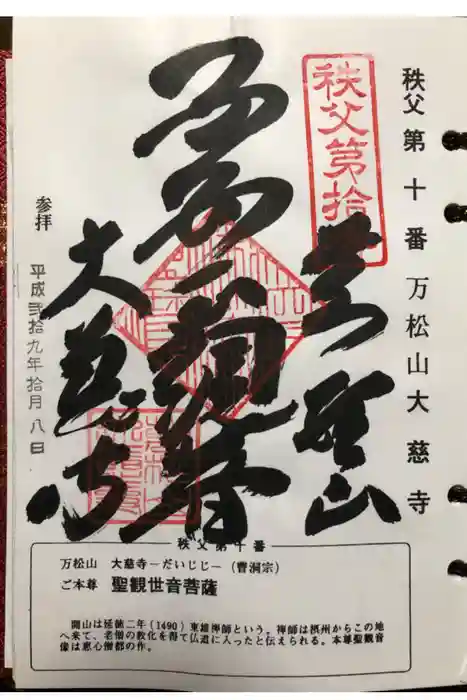 秩父第十番 万松山大慈寺
秩父第拾
大慈寺
参拝
平成弐拾九年拾月八日
秩父第十番
万松山 大慈寺―だいじじ―(曹洞宗)
ご本尊 聖観世音菩薩
開山は延徳二年(1490)東雄禅師という。禅師は摂州からこの地
へ来て、老僧の教化を得て仏道に入ったと伝えられる。本尊聖観音
像は恵心僧都の作。